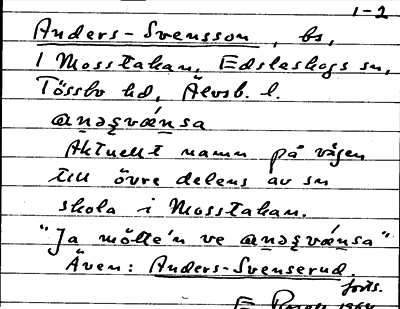 1-2
Anders-Svensson, bs,
i Mosstakan, Edsleskogs sn,
Tössbo hd, Älvsb. l.
anəʂvǽnsa
Aktuellt namn på vägen
till övre delens av sn
skola i Mosstakan.
"Ja mötte'n ve anəʂvǽnsa"
Även: Anders-Svenserud.
forts.
E